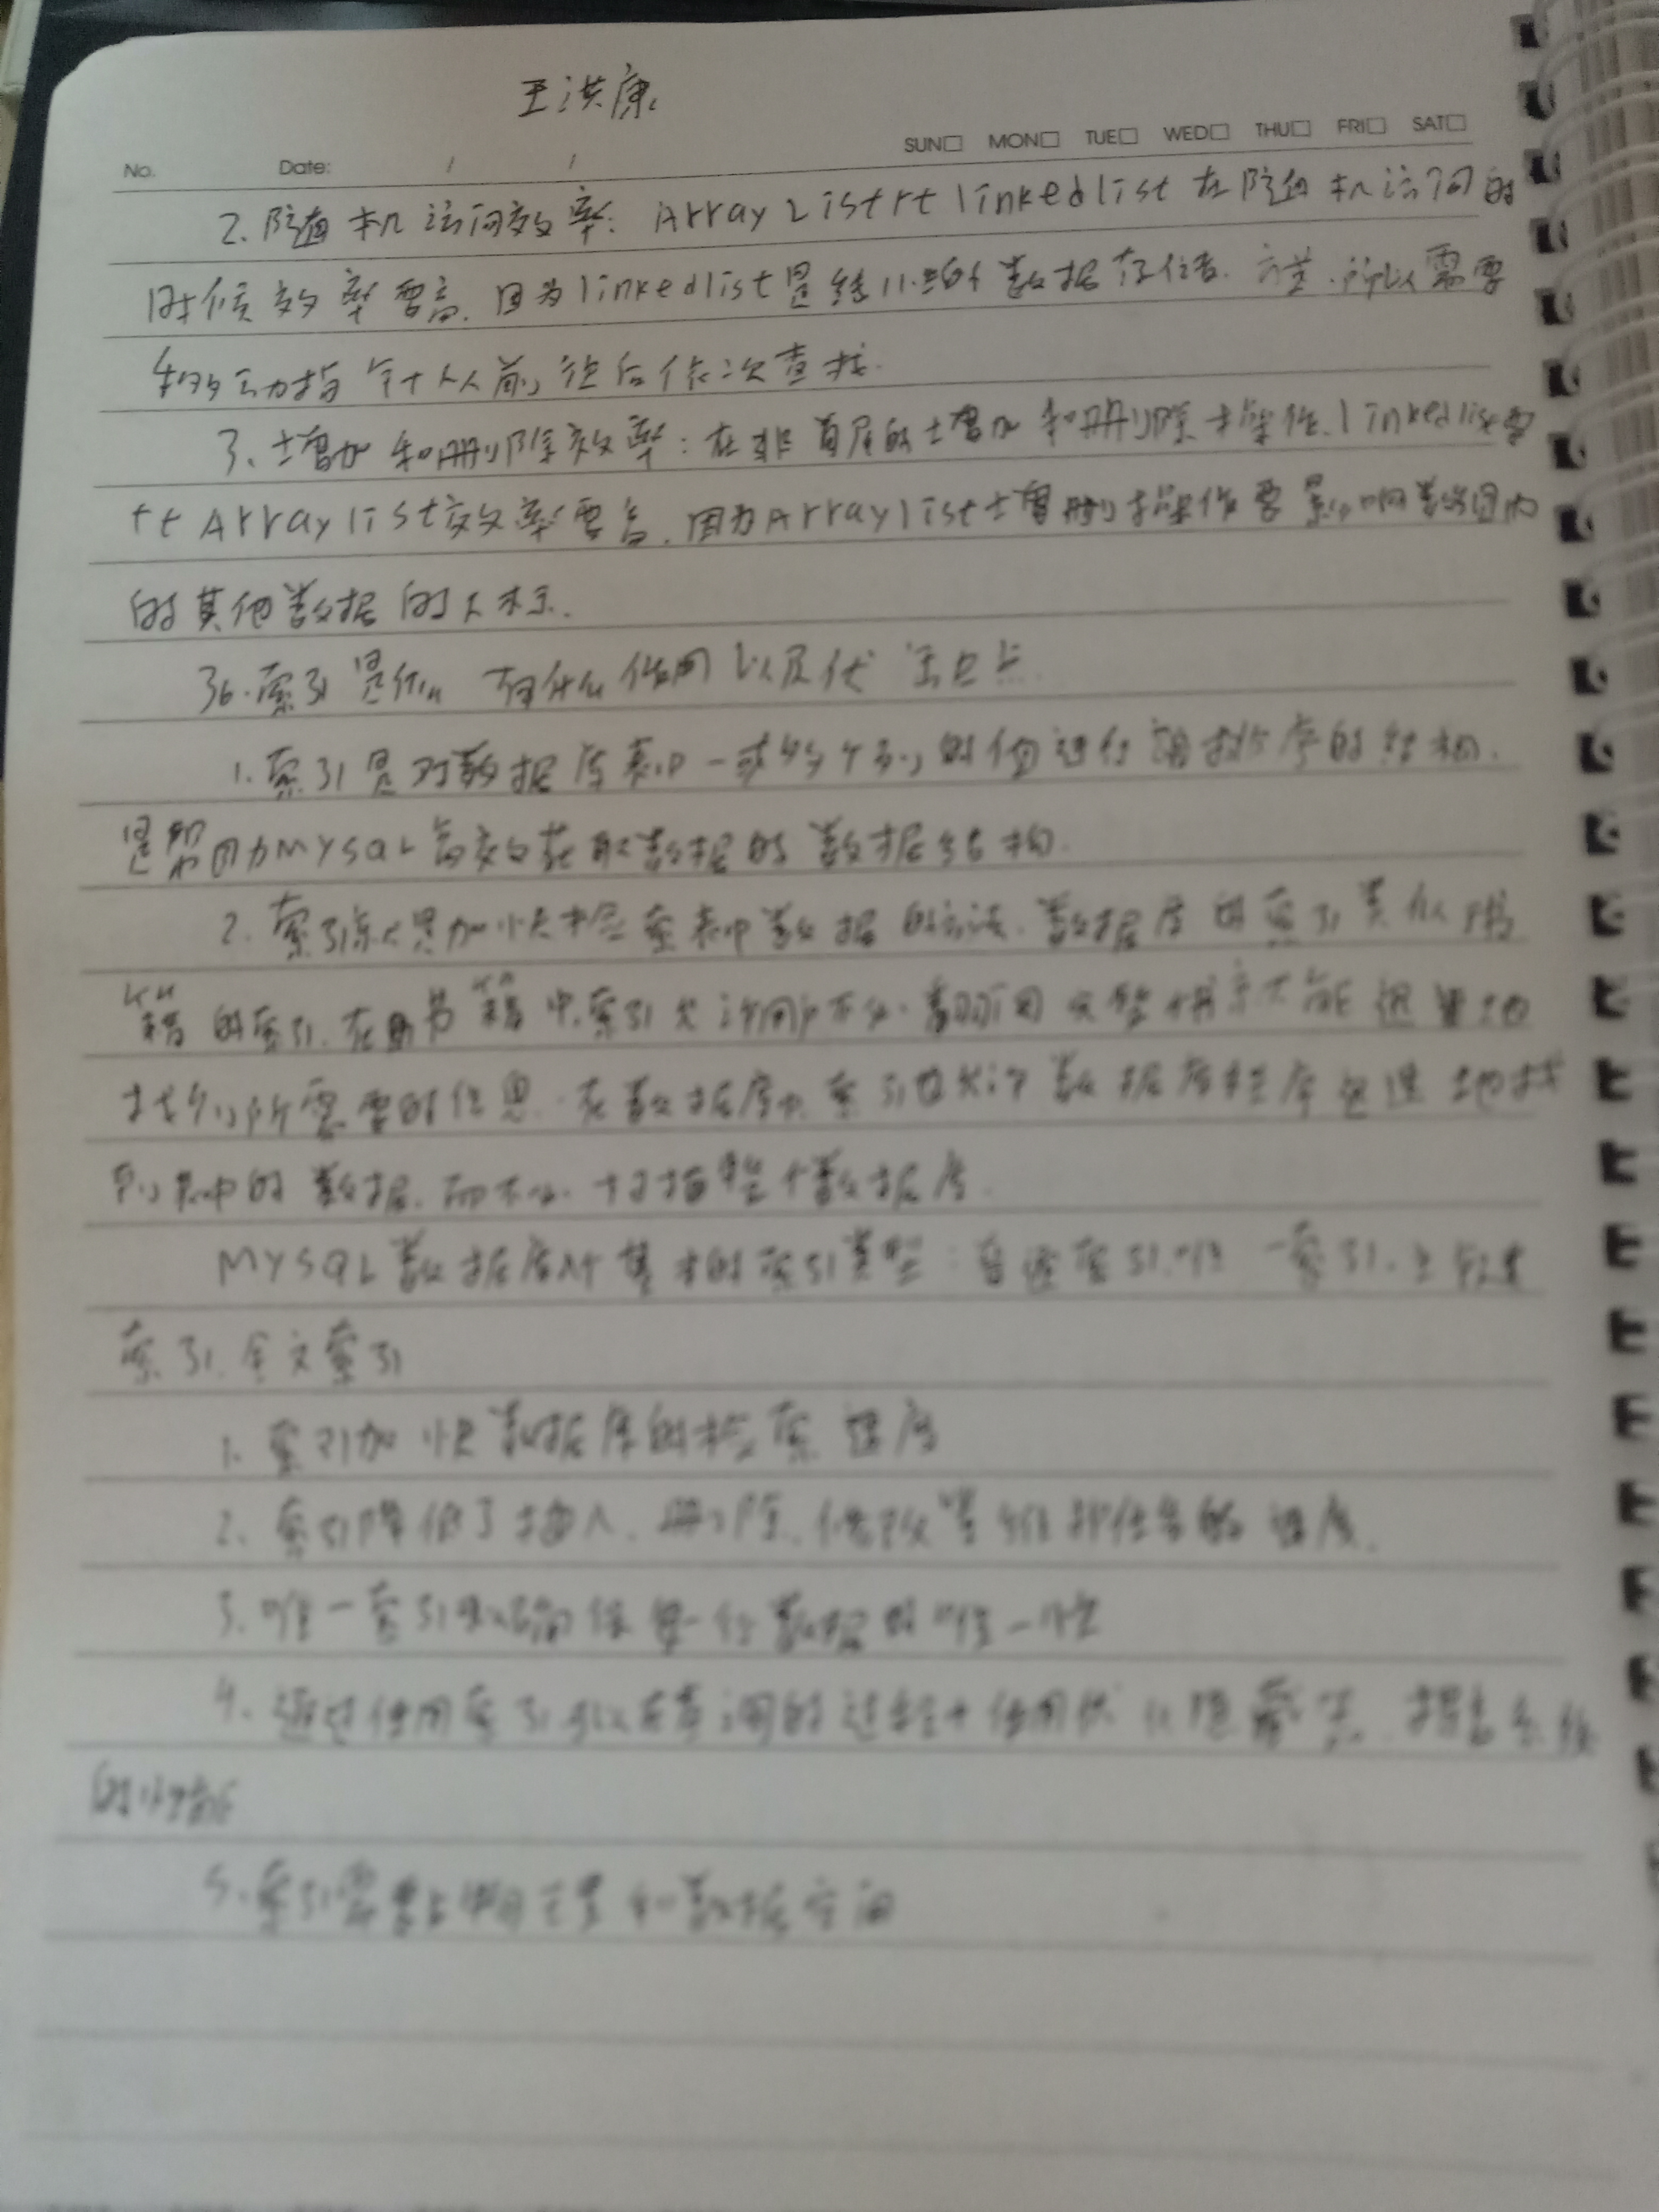 王洪康
No. Date: / / SUN□ MON□ TUE□ WED□ THU□ FRI□ SAT□
2. 随机访问效率: ArrayList比linkedlist在随机访问的
时候效率要高. 因为linkedlist是线性的数据存储方式. 所以需要
移动指针从前往后依次查找.
3. 增加和删除效率: 在非首尾的增加和删除操作. linkedlist要
比Arraylist效率要高. 因为Arraylist增删操作要影响数组内
的其他数据的下标.
36. 索引是什么 有什么作用以及优缺点.
1. 索引是对数据库表中一或多个列的值进行排序的结构.
是帮助MYSQL高效获取数据的数据结构.
2. 索引就是加快检索表中数据的方法. 数据库的索引类似书
籍的索引. 在书籍中索引允许用户不必翻阅完整个书就能迅速地
找到所需要的信息. 在数据库中索引也允许数据库程序迅速地找
到表中的数据. 而不必扫描整个数据库.
MYSQL数据库 基本的索引类型: 普通索引. 唯一索引. 主键
索引. 全文索引
1. 索引加快数据库的检索速度
2. 索引降低了插入. 删除. 修改等维护任务的速度.
3. 唯一索引可以确保每一行数据的唯一性
4. 通过使用索引可以在查询的过程中使用优化隐藏器. 提高系统
的性能
5. 索引需要占物理和数据空间